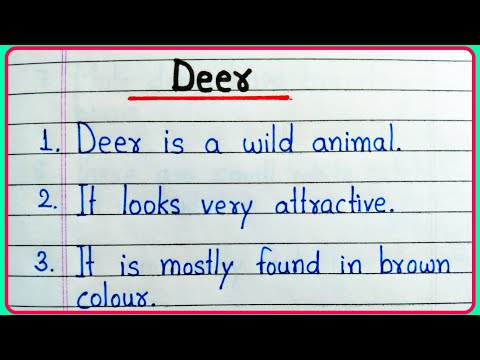 Deer
1. Deer is a wild animal.
2. It looks very attractive.
3. It is mostly found in brown
colour.